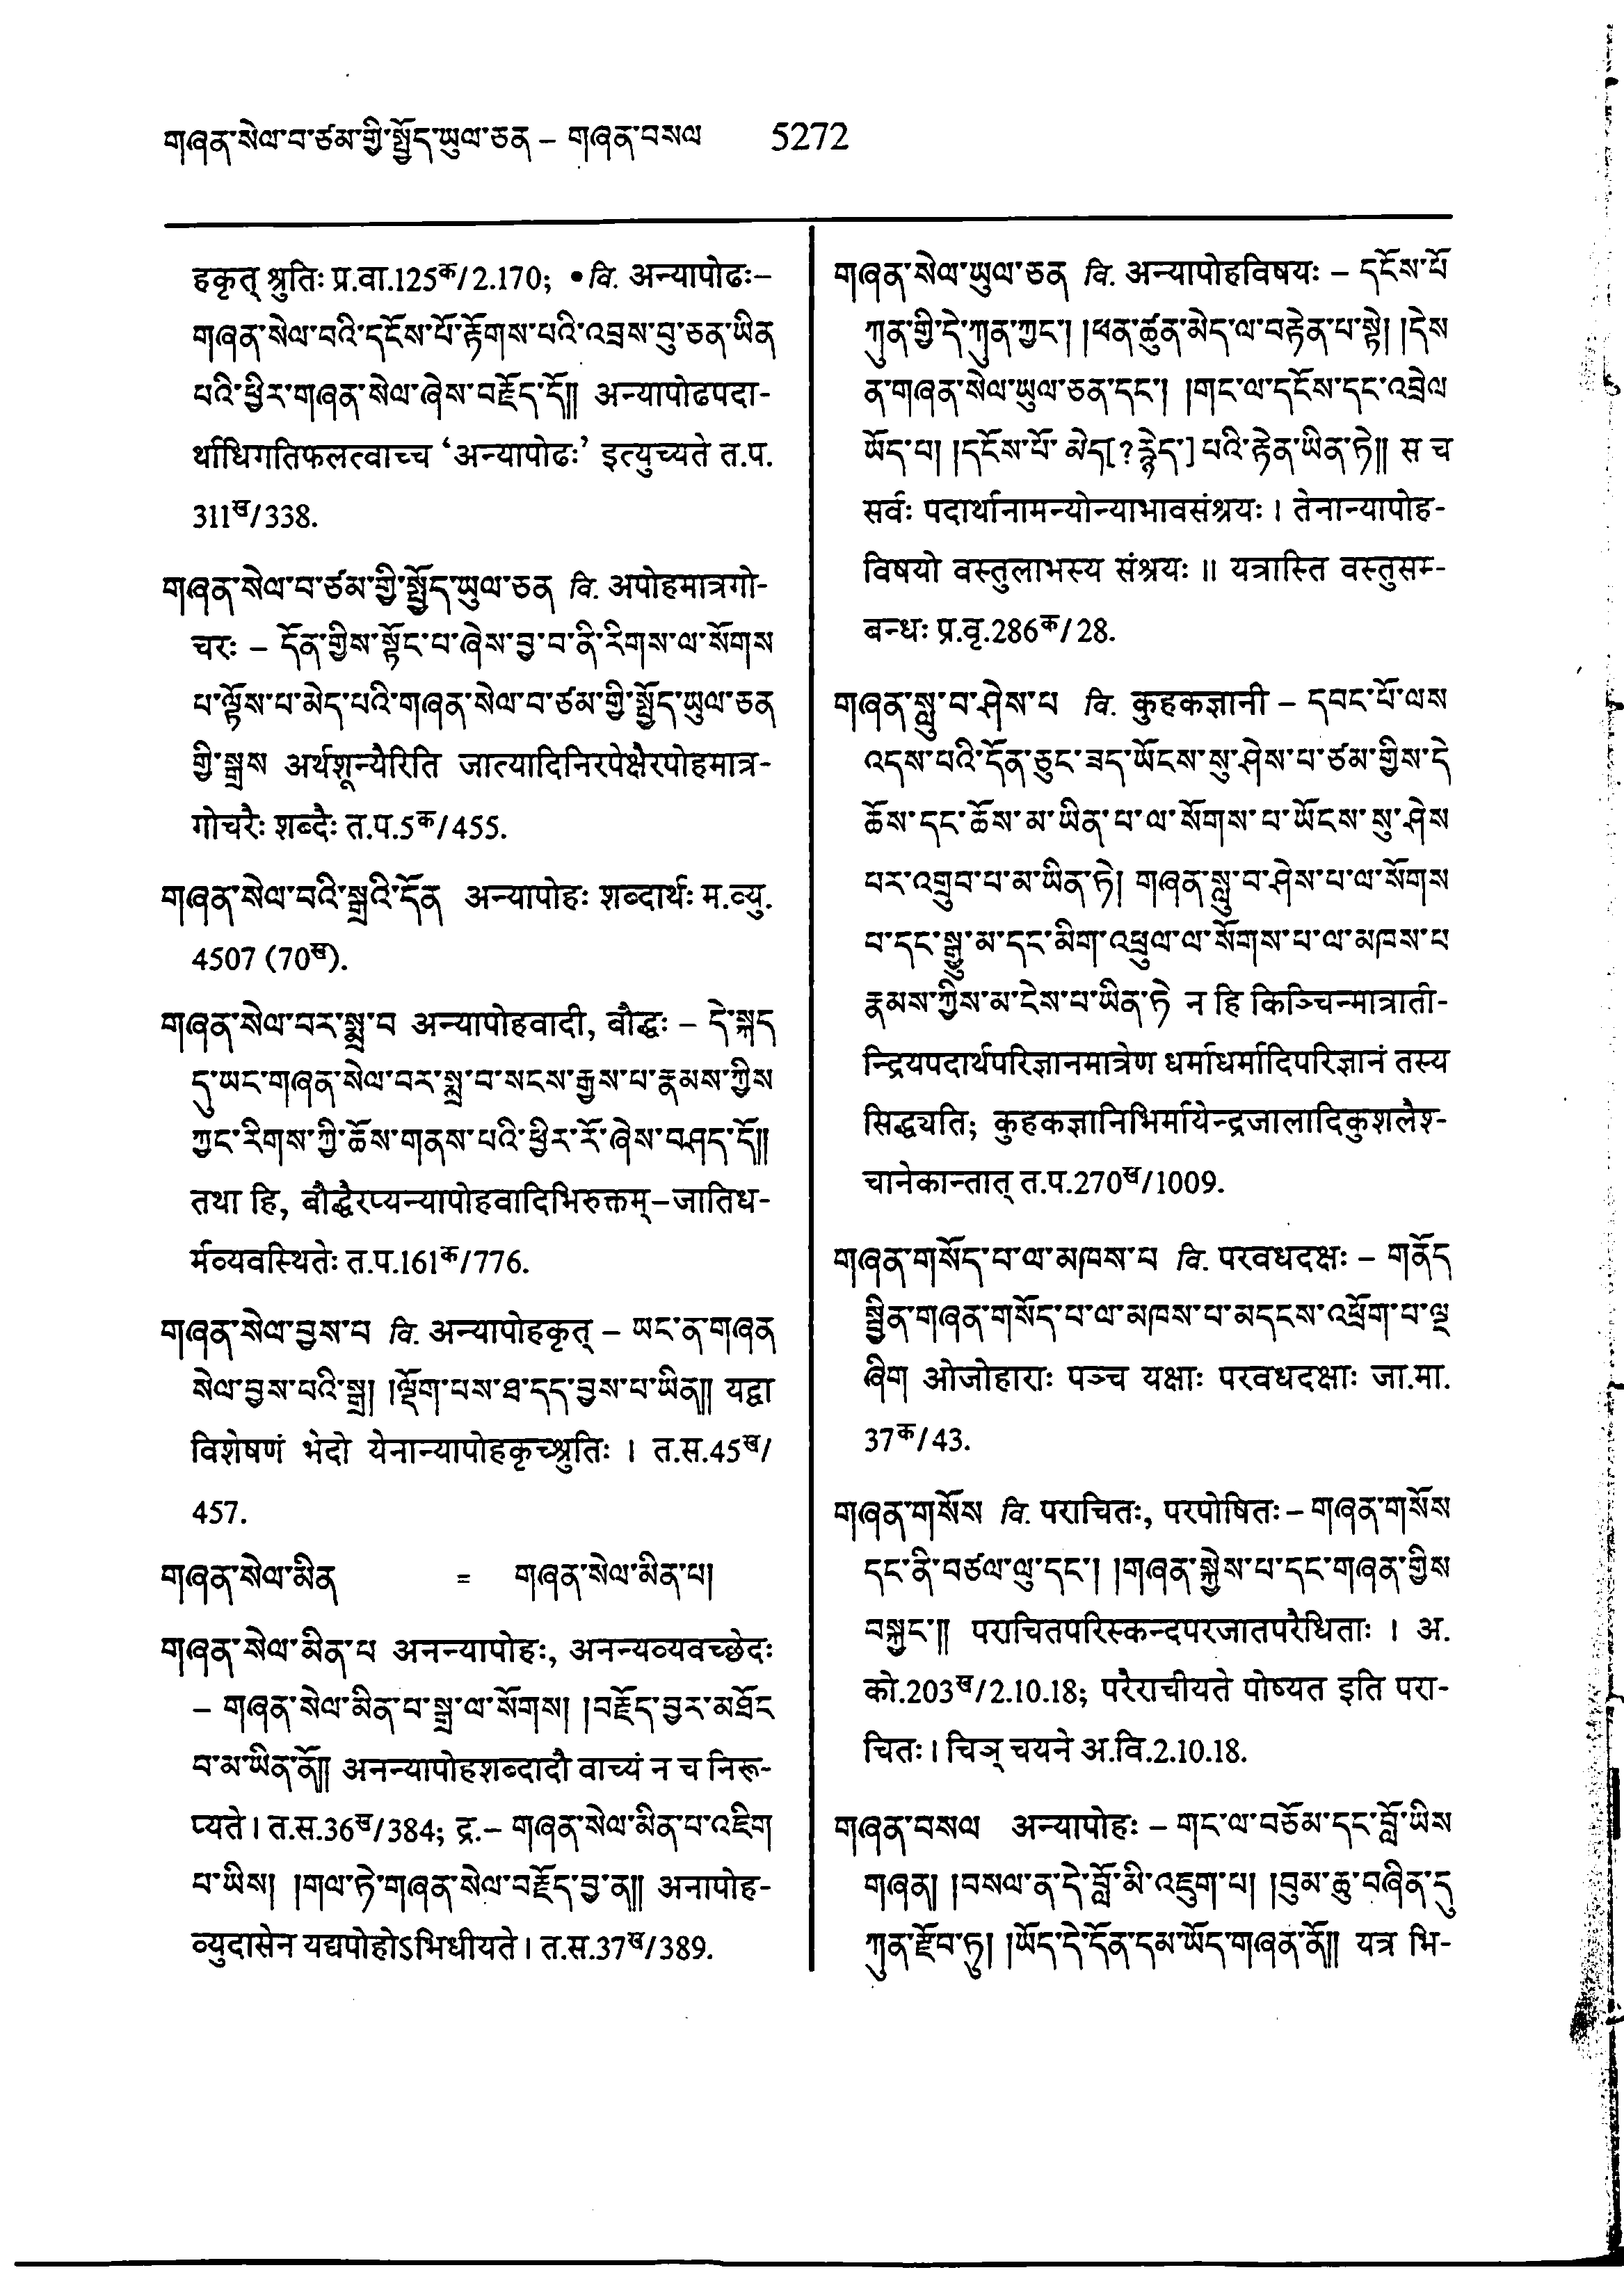 གཞན་སེལ་བ་ཙམ་གྱི་སྤྱོད་ཡུལ་ཅན – གཞན་བསལ 5272
हकृत् श्रुतिः प्र.वा.125क/2.170; •वि. अन्यापोढः–
གཞན་སེལ་བའི་དངོས་པོ་རྟོགས་པའི་འབྲས་བུ་ཅན་ཡིན
པའི་ཕྱིར་གཞན་སེལ་ཞེས་བརྗོད་དོ༎ अन्यापोढपदा-
र्थाधिगतिफलत्वाच्च ‘अन्यापोढः’ इत्युच्यते त.प.
311ख/338.
གཞན་སེལ་བ་ཙམ་གྱི་སྤྱོད་ཡུལ་ཅན वि. अपोहमात्रगो-
चरः – དོན་གྱིས་སྟོང་པ་ཞེས་བྱ་བ་ནི་རིགས་ལ་སོགས
པ་ལྟོས་པ་མེད་པའི་གཞན་སེལ་བ་ཙམ་གྱི་སྤྱོད་ཡུལ་ཅན
གྱི་སྒྲས अर्थशून्यैरिति जात्यादिनिरपेक्षैरपोहमात्र-
गोचरैः शब्दैः त.प.5क/455.
གཞན་སེལ་བའི་སྒྲའི་དོན अन्यापोहः शब्दार्थः म.व्यु.
4507 (70ख).
གཞན་སེལ་བར་སྨྲ་བ अन्यापोहवादी, बौद्धः – དེ་སྐད
དུ་ཡང་གཞན་སེལ་བར་སྨྲ་བ་སངས་རྒྱས་པ་རྣམས་ཀྱིས
ཀྱང་རིགས་ཀྱི་ཆོས་གནས་པའི་ཕྱིར་རོ་ཞེས་བཤད་དོ༎
तथा हि, बौद्धैरप्यन्यापोहवादिभिरुक्तम्–जातिध-
र्मव्यवस्थितेः त.प.161क/776.
གཞན་སེལ་བྱས་པ वि. अन्यापोहकृत् – ཡང་ན་གཞན
སེལ་བྱས་པའི་སྒྲ། །ལྡོག་པས་ཐ་དད་བྱས་པ་ཡིན༎ यद्वा
विशेषणं भेदो येनान्यापोहकृच्श्रुतिः । त.स.45ख/
457.
གཞན་སེལ་མིན = གཞན་སེལ་མིན་པ།
གཞན་སེལ་མིན་པ अनन्यापोहः, अनन्यव्यवच्छेदः
– གཞན་སེལ་མིན་པ་སྒྲ་ལ་སོགས། །བརྗོད་བྱར་མཐོང
བ་མ་ཡིན་ནོ༎ अनन्यापोहशब्दादौ वाच्यं न च निरू-
प्यते । त.स.36ख/384; द्र.– གཞན་སེལ་མིན་པ་འཇིག
པ་ཡིས། །གལ་ཏེ་གཞན་སེལ་བརྗོད་བྱ་ན༎ अनापोह-
व्युदासेन यद्यपोहोऽभिधीयते । त.स.37ख/389.
གཞན་སེལ་ཡུལ་ཅན वि. अन्यापोहविषयः – དངོས་པོ
ཀུན་གྱི་དེ་ཀུན་ཀྱང་། །ཕན་ཚུན་མེད་ལ་བརྟེན་པ་སྟེ། །དེས
ན་གཞན་སེལ་ཡུལ་ཅན་དང་། །གང་ལ་དངོས་དང་འབྲེལ
ཡོད་པ། །དངོས་པོ་ མེད[?རྙེད་] པའི་རྟེན་ཡིན་ཏེ༎ स च
सर्वः पदार्थानामन्योन्याभावसंश्रयः । तेनान्यापोह-
विषयो वस्तुलाभस्य संश्रयः ॥ यत्रास्ति वस्तुसम्-
बन्धः प्र.वृ.286क/28.
གཞན་སླུ་བ་ཤེས་པ वि. कुहकज्ञानी – དབང་པོ་ལས
འདས་པའི་དོན་ཅུང་ཟད་ཡོངས་སུ་ཤེས་པ་ཙམ་གྱིས་དེ
ཆོས་དང་ཆོས་མ་ཡིན་པ་ལ་སོགས་པ་ཡོངས་སུ་ཤེས
པར་འགྲུབ་པ་མ་ཡིན་ཏེ། གཞན་སླུ་བ་ཤེས་པ་ལ་སོགས
པ་དང་སྒྱུ་མ་དང་མིག་འཕྲུལ་ལ་སོགས་པ་ལ་མཁས་པ
རྣམས་ཀྱིས་མ་ངེས་པ་ཡིན་ཏེ न हि किञ्चिन्मात्राती-
न्द्रियपदार्थपरिज्ञानमात्रेण धर्माधर्मादिपरिज्ञानं तस्य
सिद्ध्यति; कुहकज्ञानिभिर्मायेन्द्रजालादिकुशलैश्-
चानेकान्तात् त.प.270ख/1009.
གཞན་གསོད་པ་ལ་མཁས་པ वि. परवधदक्षः – གནོད
སྦྱིན་གཞན་གསོད་པ་ལ་མཁས་པ་མདངས་འཕྲོག་པ་ལྔ
ཞིག ओजोहाराः पञ्च यक्षाः परवधदक्षाः जा.मा.
37क/43.
གཞན་གསོས वि. पराचितः, परपोषितः – གཞན་གསོས
དང་ནི་བཙལ་ལུ་དང་། །གཞན་སྐྱེས་པ་དང་གཞན་གྱིས
བསྐྱང་༎ पराचितपरिस्कन्दपरजातपरैधिताः । अ.
को.203ख/2.10.18; परैराचीयते पोष्यत इति परा-
चितः । चिञ् चयने अ.वि.2.10.18.
གཞན་བསལ अन्यापोहः – གང་ལ་བཅོམ་དང་བློ་ཡིས
གཞན། །བསལ་ན་དེ་བློ་མི་འཇུག་པ། །བུམ་ཆུ་བཞིན་དུ
ཀུན་རྫོབ་ཏུ། །ཡོད་དེ་དོན་དམ་ཡོད་གཞན་ནོ༎ यत्र भि-